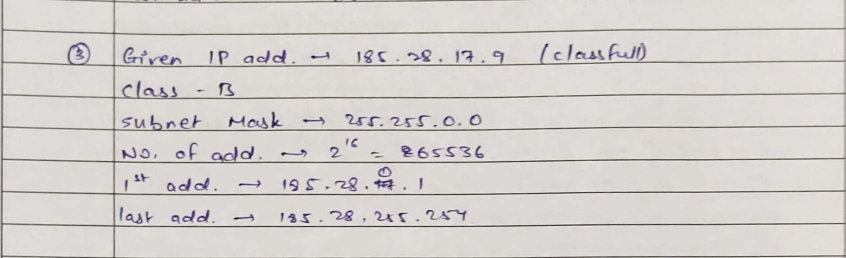 ③ Given IP add. → 185.28.17.9 (classfull)
Class - B
Subnet Mask → 255.255.0.0
No. of add. → 2¹⁶ = 65536
1st add. → 185.28.0.1
last add. → 185.28.255.254